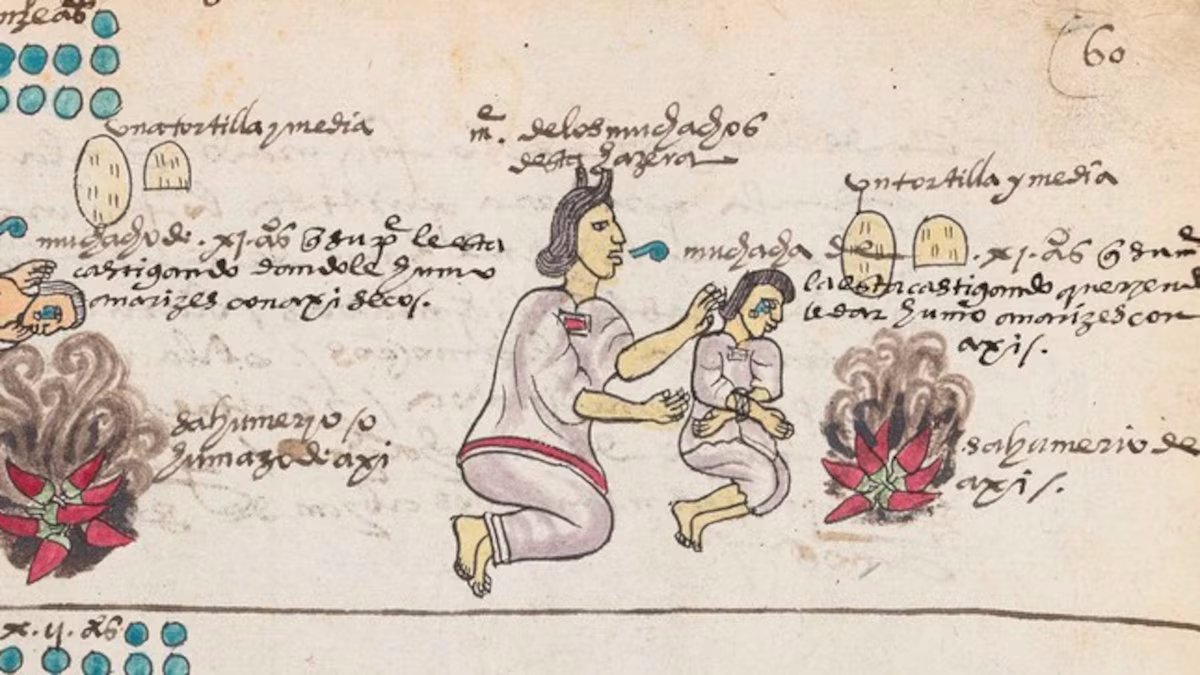 60
una tortilla y media
mᵉ. de los muchachos
desta hazera
un tortilla y media
muchacho de .xj. aᵒs q̃ su pᵉ le esta
castigando dandole humo
a narizes con axi secos.
muchacha de .xj. aᵒs q̃ su mᵉ
la esta castigando queriend
le dar humo a narizes con
axi/.
sahumerio /o
humazo de axi
sahumerio de
axi/.
x.ij. aᵒs